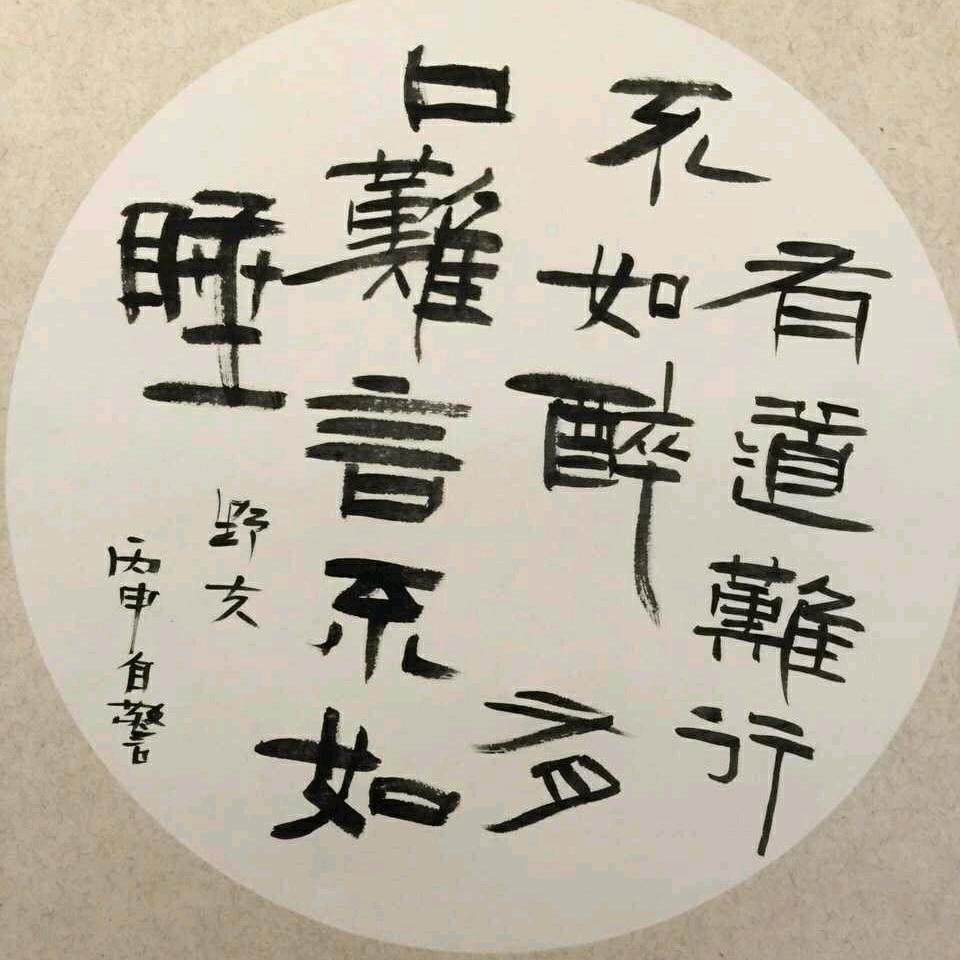 有道難行
不如醉有
口難言不如
睡
野夫
丙申自警